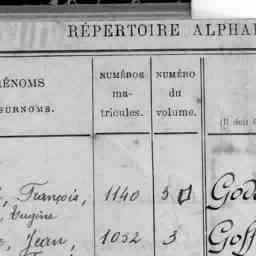 RÉPERTOIRE ALPHA
ÉNOMS
SURNOMS.
NUMÉROS
ma-
tricules.
NUMÉRO
du
volume.
(Il doit
François, 1140 3 God
Eugène
Jean, 1032 3 Goff